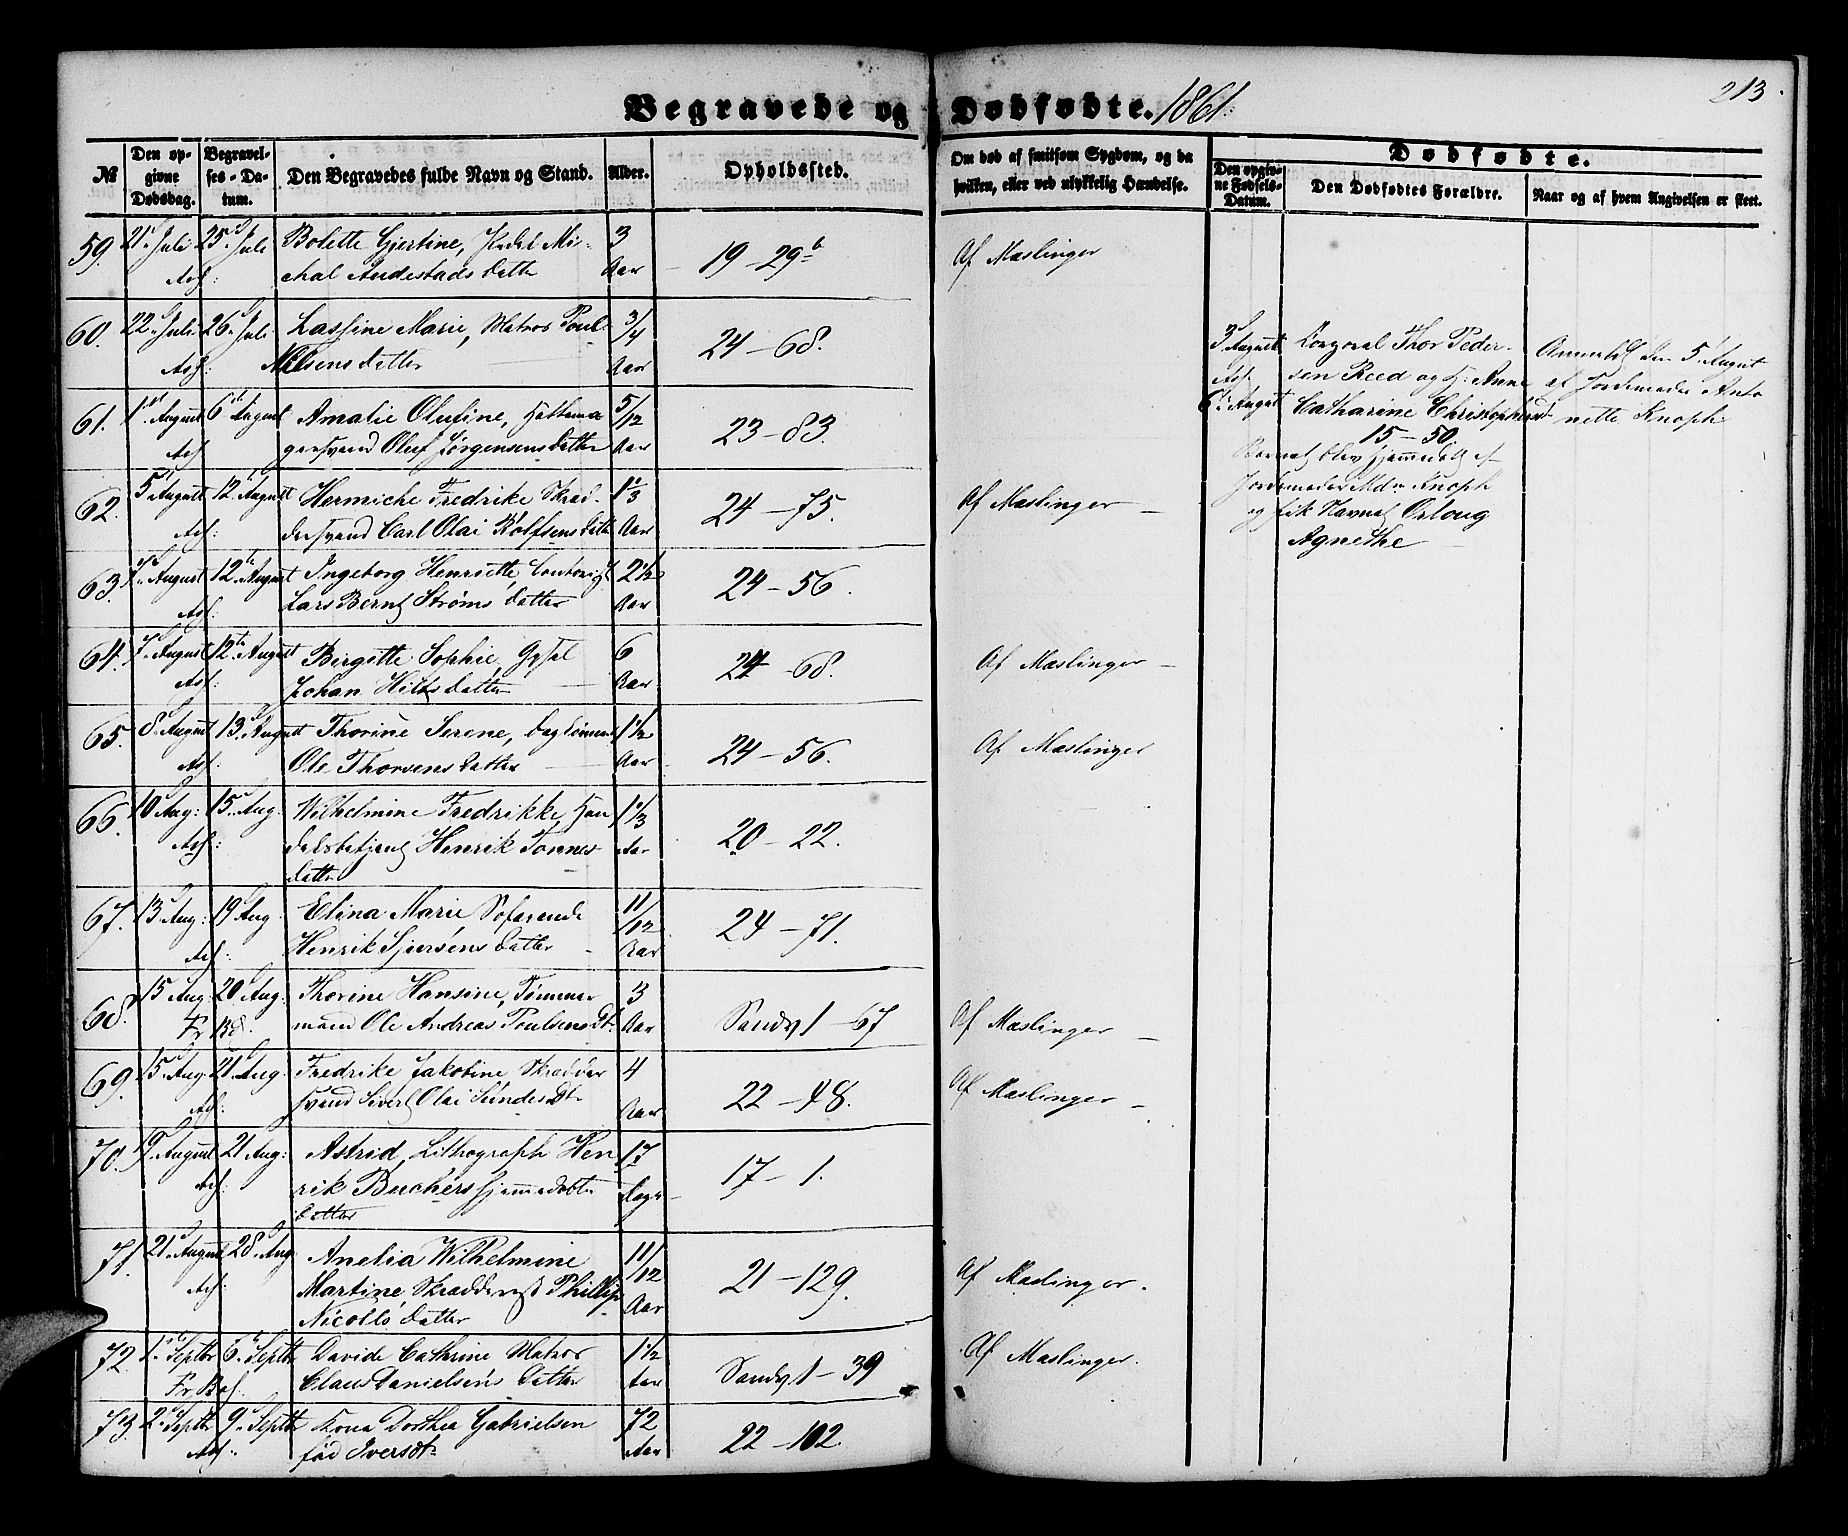 Begravede og Dødfødte. 1861.
213.
№
Den opgivne Dødsdag.
Begravelses-Datum.
Den Begravedes fulde Navn og Stand.
Alder.
Opholdssted.
Om død af smitsom Sygdom, og da hvilken, eller ved ulykkelig Hændelse.
Dødfødte.
Den opgivne Fødsels-Datum.
Den Dødfødtes Forældre.
Naar og af hvem Angivelsen er skeet.
59. 21 Juli 25 Juli Bolette Gjertine, Mi- 3
chal Andestads Datter Aar 19-29b Af Mæslinger
60. 22 Juli 26 Juli Lassine Marie, Matros Poul 3/4
Nilsens datter Aar 24-68.
61. 1 August 6 August Amalie Olufine, Hattema 5/12
gersvend Oluf Jørgensens datter Aar 23-83.
62. 5 August 12 August Hermiche Fredrike Skræd- 1 1/3
dersvend Carl Olai Rolfsens datt Aar 24-75. Af Mæslinger
63. 7 August 12te August Ingeborg Henriette 2 1/2
Lars Bernt Strøms Datter Aar 24-56.
64. 7 August 12te August Birgette Sophie, 6
Johan Hilts datter Aar 24-68. Af Mæslinger
65. 8 August 13 August Thorine Serene, 1 1/2
Ole Thorsens Datter Aar 24-56. Af Mæslinger
66. 10 Aug: 15 Aug. Wilhelmine Fredrikke, Han 1 1/3
delsbetjent Henrik Tonnes Aar 20-22.
datter
67. 13 Aug: 19 Aug. Elina Marie 11/12
Henrik Datter Aar 24-71.
68. 15 Aug. 20 Aug. Thorine Hansine, Tømmer 3
mand Ole Andreas Poulsens Dt. Aar Sandv 1-67 Af Mæslinger
69. 15 Aug. 21 Aug. Fredrike Jakobine Skrædder 4
svend Sivert Olai Sundes Dt. Aar 22-48. Af Mæslinger
70. 9 August 21 Aug: Astrid, Lithograph Hen 17
rik Buchers hjemmedøbte Dage 17-1.
datter
71. 21 August 28 Aug. Anelia Wilhelmine 11/12
Martine Phillip Aar 21-129. Af Mæslinger.
Nicolls datter
72. 1ste Septbr 6te Septbr Davide Cathrine Matros 1 1/2
Claus Danielsens Datter Aar Sandv 1-39 Af Mæslinger.
73. 2 Septbr 9 Septbr Kona Dorthea Gabrielsen 72
fød Iversdtr Aar 22-102.
3 August
6 August
Korporal Thor Peder-
sen Reed og H: Anne
Catharine
15-50.
Barnet blev hjemmedøbt af
Jordemoder Mdm Knoph
og fik Navnet
Agnethe
Anmeldt den 5 August
af Jordemoder Anto
nette Knoph